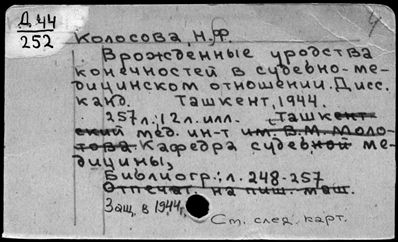 Д 44
252
4
Колосова, Н.Ф.
Врожденные уродства
конечностей в судебно-ме-
дицинском отношении. Дисс.
канд. Ташкент, 1944.
257 л.; 12 л. илл. (Ташкент-
ский мед. ин-т им. В.М. Моло-
това. Кафедра судебной ме-
дицины,
Библиогр.: л. 248-257
Отпечат. на пиш. маш.
Защ. в 1944г.
См. след. карт.